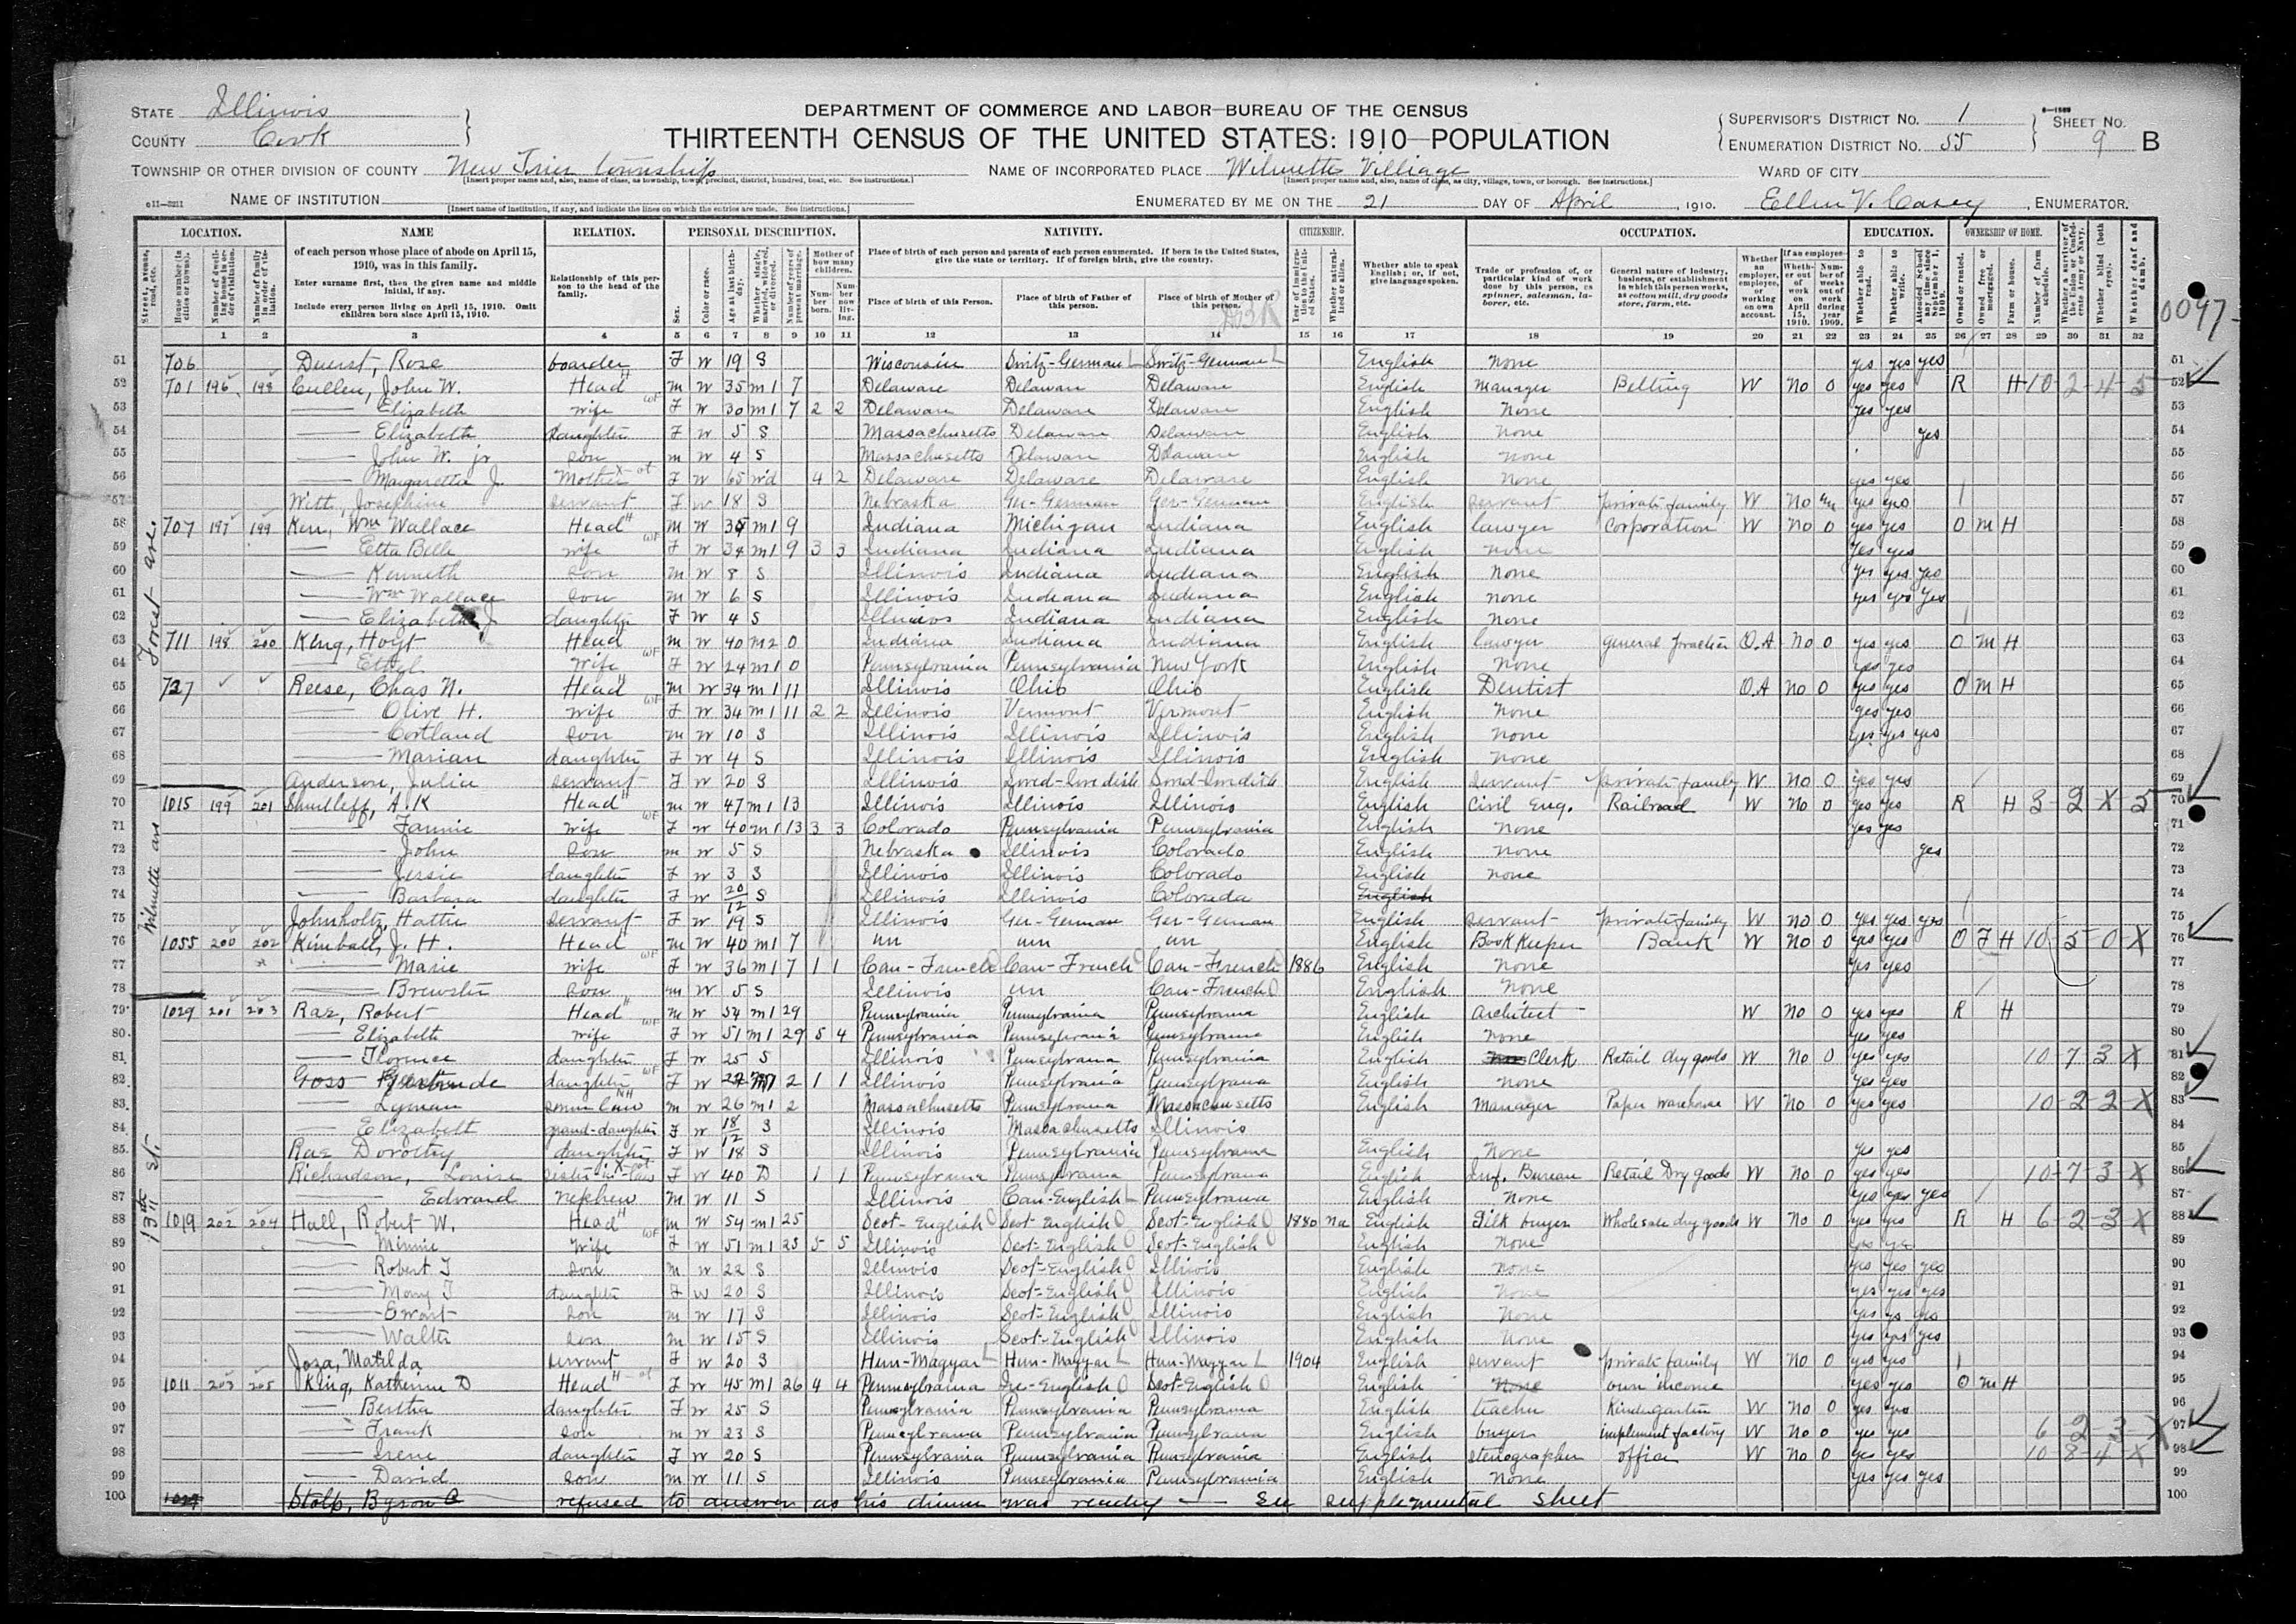 STATE Illinois
COUNTY Cook
DEPARTMENT OF COMMERCE AND LABOR—BUREAU OF THE CENSUS
THIRTEENTH CENSUS OF THE UNITED STATES: 1910—POPULATION
SUPERVISOR'S DISTRICT No. 1
ENUMERATION DISTRICT No. 55
SHEET No. 9 B
TOWNSHIP OR OTHER DIVISION OF COUNTY New Trier township
NAME OF INCORPORATED PLACE Wilmette Villiage
WARD OF CITY
NAME OF INSTITUTION
ENUMERATED BY ME ON THE 21 DAY OF April, 1910. Ellen V. Casey, ENUMERATOR.
LOCATION. NAME RELATION. PERSONAL DESCRIPTION. NATIVITY. CITIZENSHIP. OCCUPATION. EDUCATION. OWNERSHIP OF HOME.
51 706 Duerst, Rose boarder F W 19 S Wisconsin Switz-German Switz-German English None yes yes yes 51
52 701 196 198 Cullen, John W. Head m W 35 m1 7 Delaware Delaware Delaware English Manager Belting W No 0 yes yes R H 10-2-4-5 52
53 Elizabeth wife F W 30 m1 7 2 2 Delaware Delaware Delaware English None yes yes 53
54 Elizabeth daughter F W 5 S Massachusetts Delaware Delaware English None yes 54
55 John W. jr son m W 4 S Massachusetts Delaware Delaware English None 55
56 Margaretta J. Mother F W 65 wd 4 2 Delaware Delaware Delaware English None yes yes 56
57 Witt, Josephine servant F W 18 S Nebraska Ger-German Ger-German English servant private family W No yes yes 57
58 707 197 199 Kerr, Wm Wallace Head m W 35 m1 9 Indiana Michigan Indiana English lawyer Corporation W No 0 yes yes O m H 58
59 Etta Belle wife F W 34 m1 9 3 3 Indiana Indiana Indiana English none yes yes 59
60 Kenneth son m W 8 S Illinois Indiana Indiana English None yes yes yes 60
61 Wm Wallace son m W 6 S Illinois Indiana Indiana English none yes yes yes 61
62 Elizabeth J daughter F W 4 S Illinois Indiana Indiana English None 62
63 711 198 200 King, Hoyt Head m W 40 m2 0 Indiana Indiana Indiana English lawyer general practice O.A No 0 yes yes O m H 63
64 Ethel wife F W 24 m1 0 Pennsylvania Pennsylvania New York English None yes yes 64
65 727 Reese, Chas N. Head m W 34 m1 11 Illinois Ohio Ohio English Dentist O.A No 0 yes yes O m H 65
66 Olive H. wife F W 34 m1 11 2 2 Illinois Vermont Vermont English None yes yes 66
67 Cortland son m W 10 S Illinois Illinois Illinois English None yes yes yes 67
68 Marian daughter F W 4 S Illinois Illinois Illinois English None 68
69 Anderson, Julia servant F W 20 S Illinois Swed-Swedish Swed-Swedish English servant private family W No 0 yes yes 69
70 1015 199 201 Shurtleff, A. K Head m W 47 m1 13 Illinois Illinois Illinois English Civil Eng. Railroad W No 0 yes yes R H 3-2-X-5 70
71 Fannie wife F W 40 m1 13 3 3 Colorado Pennsylvania Pennsylvania English None yes yes 71
72 John son m W 5 S Nebraska Illinois Colorado English None yes 72
73 Jessie daughter F W 3 S Illinois Illinois Colorado English none 73
74 Barbara daughter F W 20/12 S Illinois Illinois Colorado English 74
75 Johnholtz, Hattie servant F W 19 S Illinois Ger-German Ger-German English servant private family W no 0 yes yes yes 75
76 1055 200 202 Kimball, J. H. Head m W 40 m1 7 un un un English Book Keeper Bank W No 0 yes yes O F H 10-5-0-X 76
77 Marie wife F W 36 m1 7 1 1 Can-French Can-French Can-French 1886 English None yes yes 77
78 Brewster son m W 5 S Illinois un Can-French English None 78
79 1029 201 203 Rae, Robert Head m W 54 m1 29 Pennsylvania Pennsylvania Pennsylvania English Architect W No 0 yes yes R H 79
80 Elizabeth wife F W 51 m1 29 5 4 Pennsylvania Pennsylvania Pennsylvania English None yes yes 80
81 Florence daughter F W 25 S Illinois Pennsylvania Pennsylvania English Clerk Retail dry goods W No 0 yes yes 10-7-3-X 81
82 Goss Gertrude daughter F W 22 m1 2 1 1 Illinois Pennsylvania Pennsylvania English none yes yes 82
83 Lyman son in law m W 26 m1 2 Massachusetts Pennsylvania Massachusetts English Manager Paper Warehouse W No 0 yes yes 10-2-2-X 83
84 Elizabeth grand-daughter F W 18/12 S Illinois Massachusetts Illinois 84
85 Rae Dorothy daughter F W 18 S Illinois Pennsylvania Pennsylvania English None yes yes 85
86 Richardson, Louise sister-in-law F W 40 D 1 1 Pennsylvania Pennsylvania Pennsylvania English Inf. Bureau Retail Dry goods W No 0 yes yes 10-7-3-X 86
87 Edward nephew m W 11 S Illinois Can-English Pennsylvania English None yes yes yes 87
88 1019 202 204 Hall, Robert W. Head m W 54 m1 25 Scot-English Scot-English Scot-English 1880 na English Silk buyer Wholesale dry goods W No 0 yes yes R H 6-2-3-X 88
89 Minnie wife F W 51 m1 25 5 5 Illinois Scot-English Scot-English English None yes yes 89
90 Robert T son m W 22 S Illinois Scot-English Illinois English none yes yes yes 90
91 Mary T daughter F W 20 S Illinois Scot-English Illinois English None yes yes yes 91
92 Ewart son m W 17 S Illinois Scot-English Illinois English None yes yes yes 92
93 Walter son m W 15 S Illinois Scot-English Illinois English None yes yes yes 93
94 Joza, Matilda servant F W 20 S Hun-Magyar Hun-Magyar Hun-Magyar 1904 English servant private family W No 0 yes yes 94
95 1011 203 205 King, Katherine D Head F W 45 m1 26 4 4 Pennsylvania Ire-English Scot-English English None own income yes yes O m H 95
96 Bertha daughter F W 25 S Pennsylvania Pennsylvania Pennsylvania English teacher Kindergarten W No 0 yes yes 96
97 Frank son m W 23 S Pennsylvania Pennsylvania Pennsylvania English buyer implement factory W No 0 yes yes 6-2-3-X 97
98 Irene daughter F W 20 S Pennsylvania Pennsylvania Pennsylvania English stenographer office W No 0 yes yes 10 8 4 X 98
99 David son m W 11 S Illinois Pennsylvania Pennsylvania English None yes yes yes 99
100 Stolp, Byron C refused to answer as his dinner was ready — See supplemental sheet 100
Forest ave.
Wilmette ave
13th St.
0097-